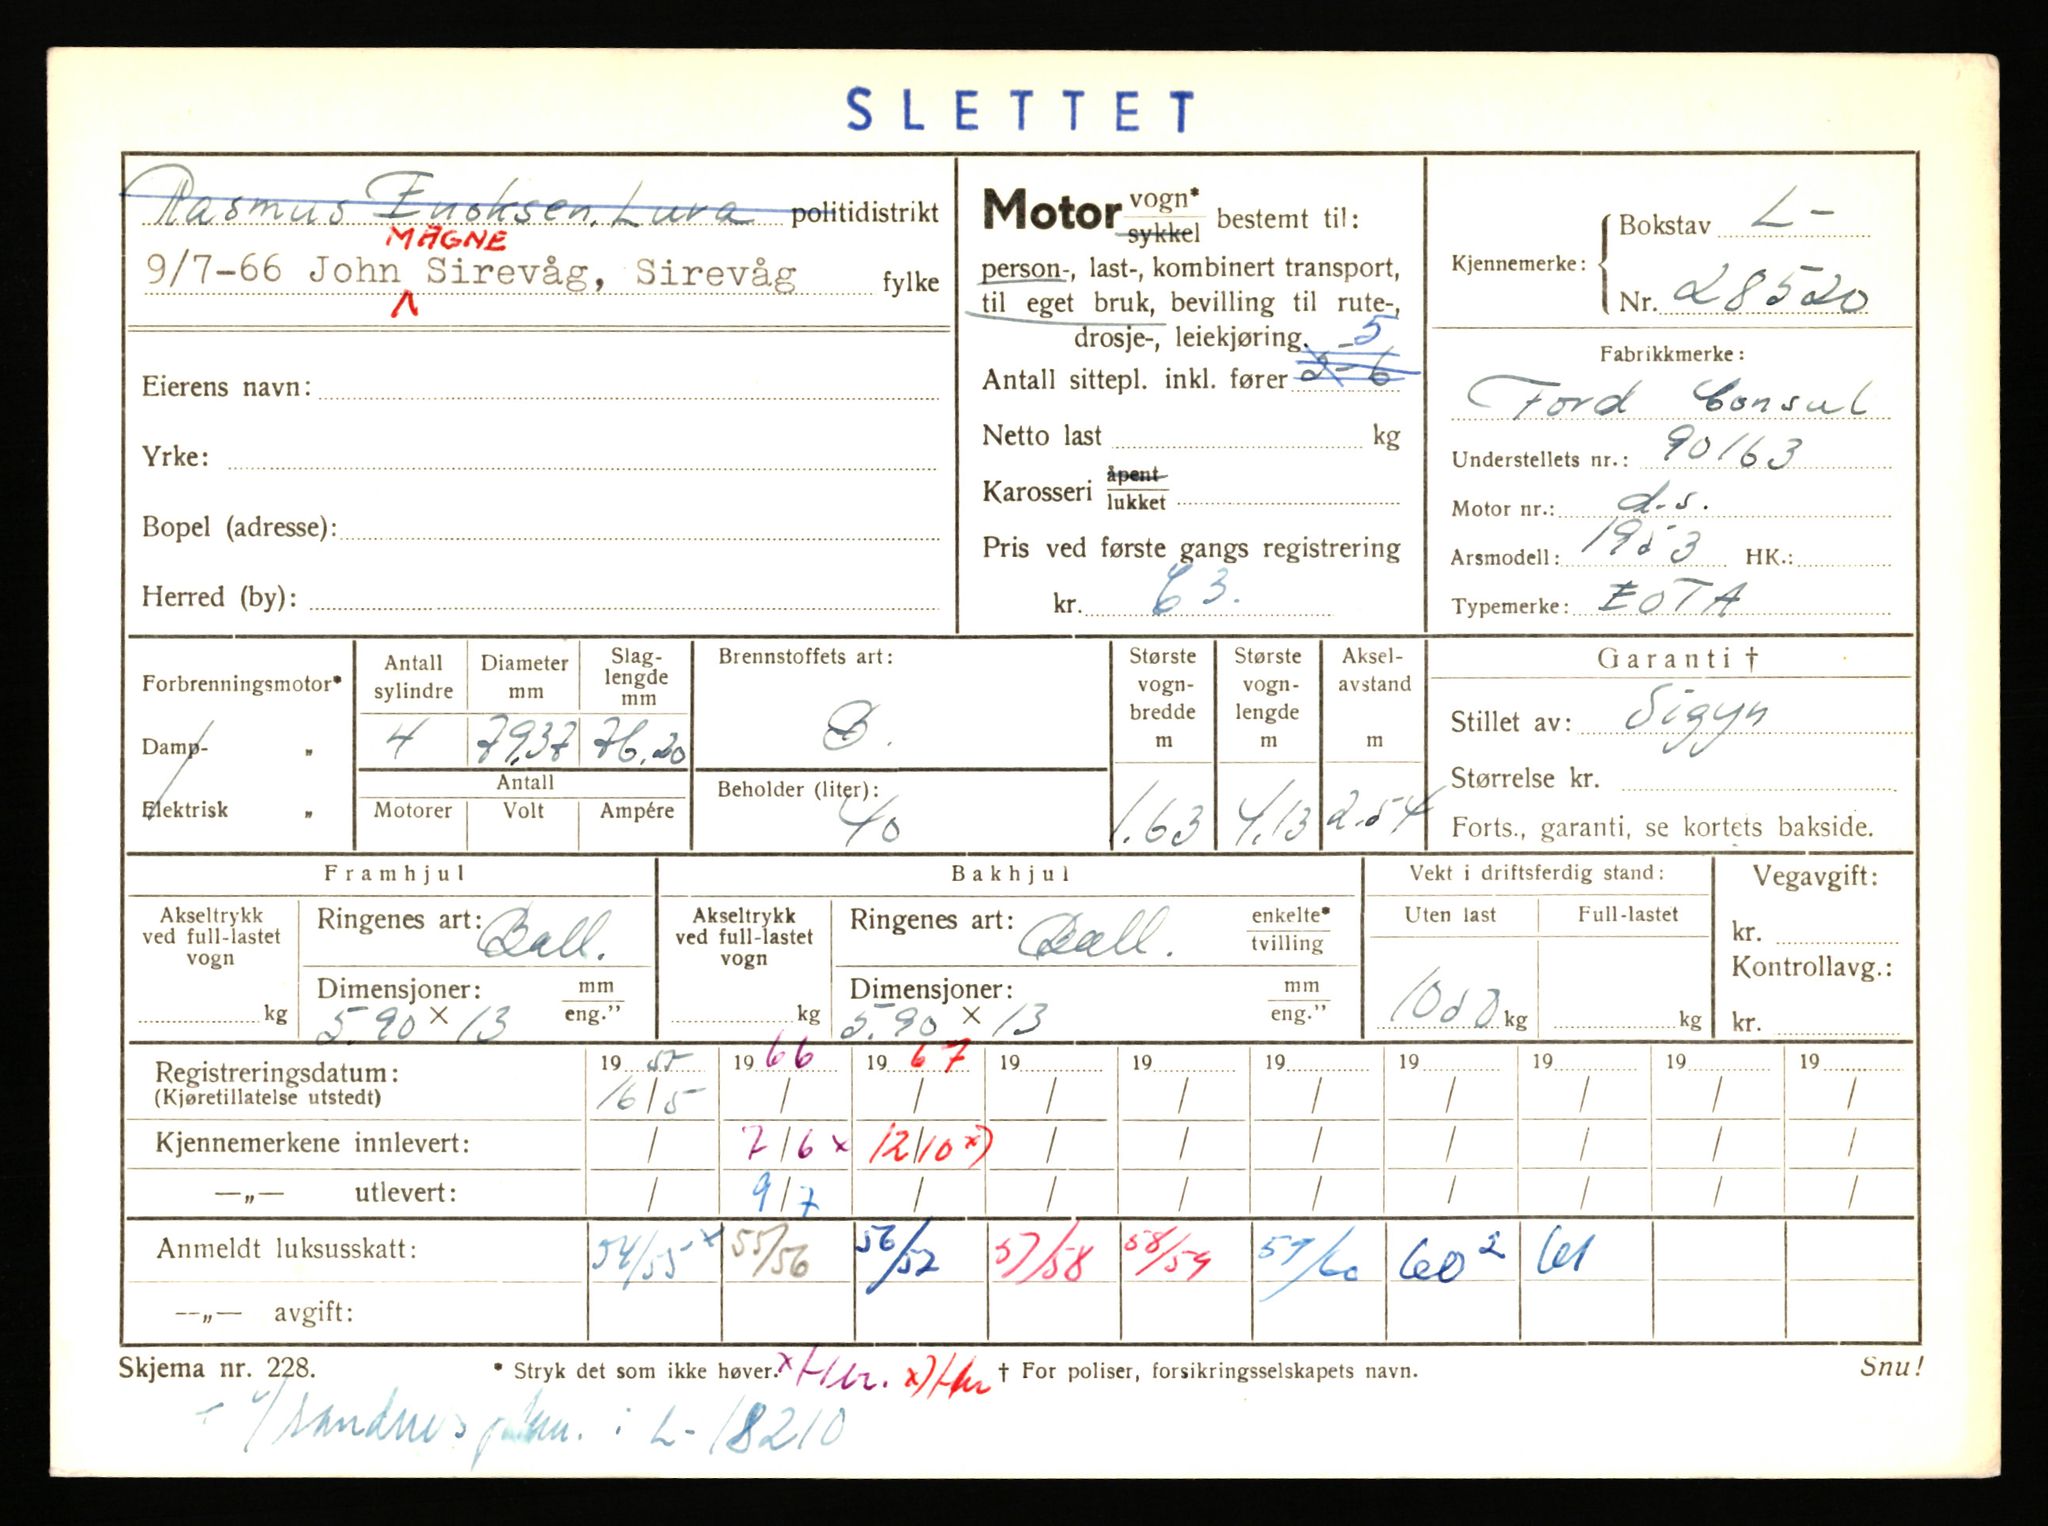 SLETTET
Rasmus Enoksen, Lura politidistrikt
MAGNE
9/7-66 John Sirevåg, Sirevåg fylke
Eierens navn:
Yrke:
Bopel (adresse):
Herred (by):
Motor vogn* sykkel bestemt til:
person-, last-, kombinert transport,
til eget bruk, bevilling til rute-,
drosje-, leiekjøring.
5
Antall sittepl. inkl. fører 2-6
Netto last kg
Karosseri åpent lukket
Pris ved første gangs registrering
kr. 63.
Kjennemerke: Bokstav L-
Nr. 28520
Fabrikkmerke:
Ford Consul
Understellets nr.: 90163
Motor nr.: d.s.
Arsmodell: 1953 HK.:
Typemerke: EOTA
Forbrenningsmotor*
Damp- „
Elektrisk „
Antall sylindre 4
Diameter mm 79,37
Slag-lengde mm 76,20
Antall
Motorer Volt Ampére
Brennstoffets art:
B.
Beholder (liter):
40
Største vogn-bredde m 1.63
Største vogn-lengde m 4,13
Aksel-avstand m 2.54
Garanti †
Stillet av: Sigyn
Størrelse kr.
Forts., garanti, se kortets bakside.
Framhjul
Akseltrykk ved full-lastet vogn kg
Ringenes art: Ball.
Dimensjoner: mm eng.”
5.90 × 13
Bakhjul
Akseltrykk ved full-lastet vogn kg
Ringenes art: Ball. enkelte* tvilling
Dimensjoner: mm eng.”
5.90 × 13
Vekt i driftsferdig stand:
Uten last Full-lastet
kg kg
Vegavgift:
kr.
Kontrollavg.:
kr.
19 55 19 66 19 67 19 19 19 19 19 19 19
Registreringsdatum: 16/5 / / / / / / / / /
(Kjøretillatelse utstedt)
Kjennemerkene innlevert: / 7/6 x 12/10 x) / / / / / / /
—„— utlevert: / 9/7 / / / / / / / /
Anmeldt luksusskatt: 54/55 x 55/56 56/57 57/58 58/59 59/60 60 2 61
—„— avgift:
Skjema nr. 228.
* Stryk det som ikke høver.
† For poliser, forsikringsselskapets navn.
Snu!
i L-18210